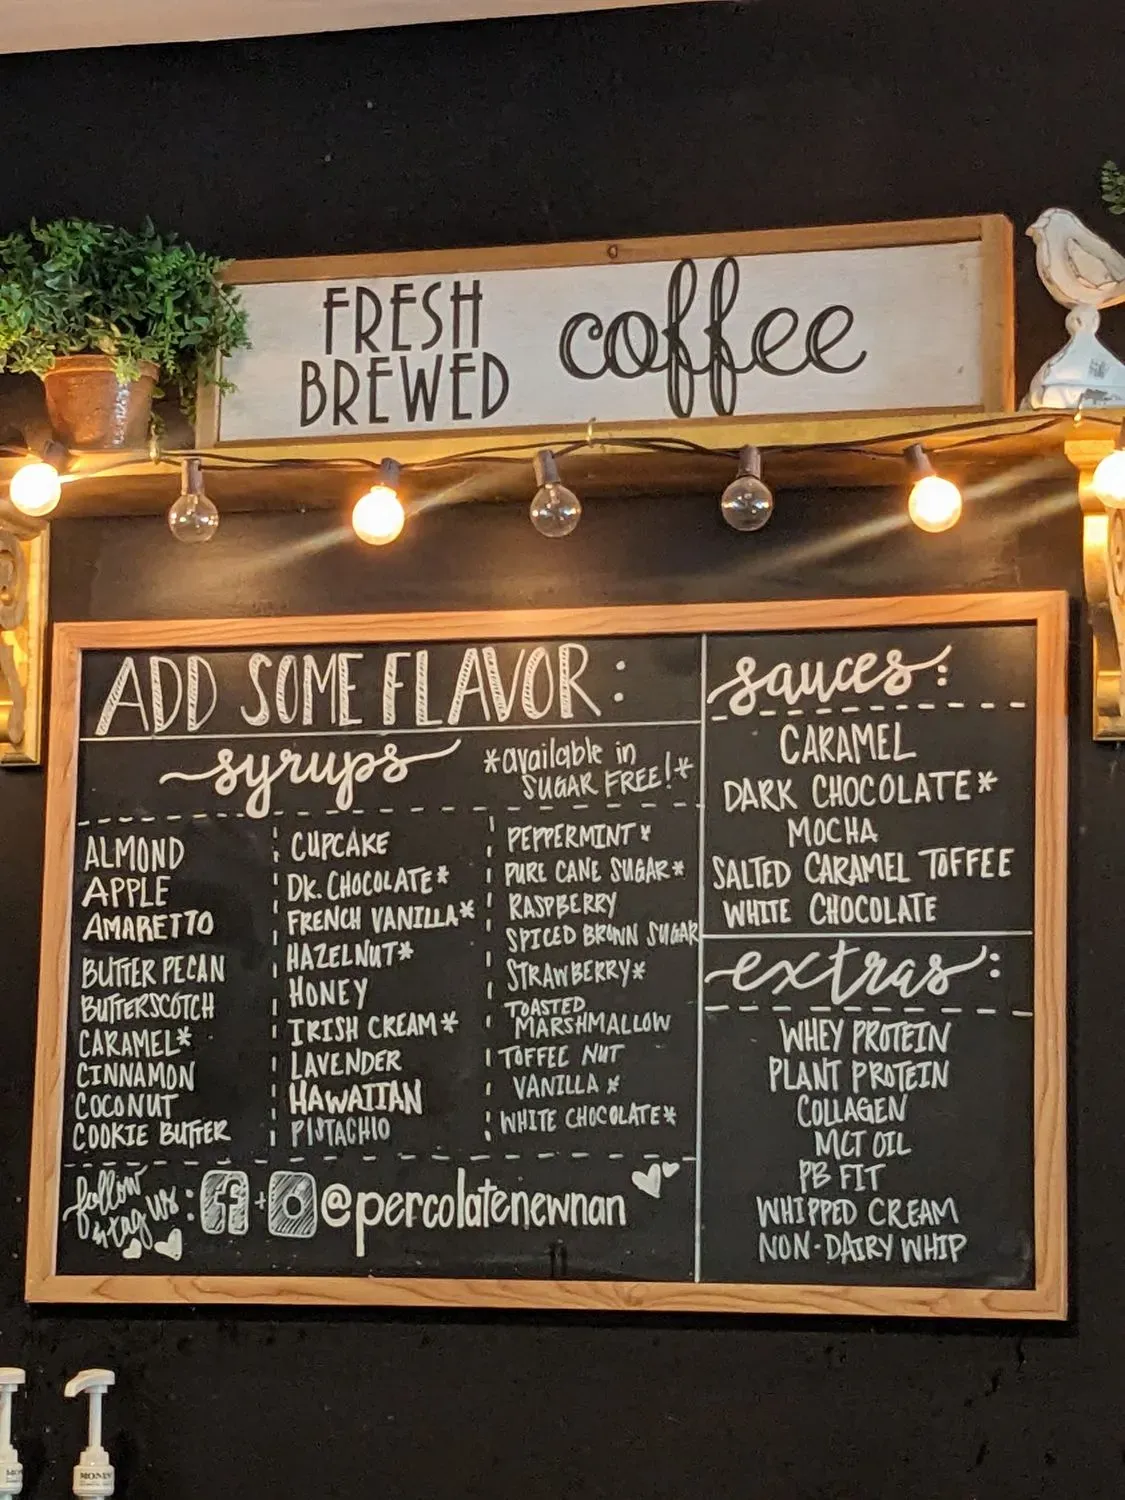 FRESH
BREWED
coffee
ADD SOME FLAVOR:
syrups
*available in
SUGAR FREE!*
ALMOND
APPLE
AMARETTO
BUTTER PECAN
BUTTERSCOTCH
CARAMEL*
CINNAMON
COCONUT
COOKIE BUTTER
CUPCAKE
DK. CHOCOLATE*
FRENCH VANILLA*
HAZELNUT*
HONEY
IRISH CREAM*
LAVENDER
HAWAIIAN
PISTACHIO
PEPPERMINT*
PURE CANE SUGAR*
RASPBERRY
SPICED BROWN SUGAR
STRAWBERRY*
TOASTED
MARSHMALLOW
TOFFEE NUT
VANILLA*
WHITE CHOCOLATE*
follow
& tag us:
f + @percolatenewnan
sauces:
CARAMEL
DARK CHOCOLATE*
MOCHA
SALTED CARAMEL TOFFEE
WHITE CHOCOLATE
extras:
WHEY PROTEIN
PLANT PROTEIN
COLLAGEN
MCT OIL
PB FIT
WHIPPED CREAM
NON-DAIRY WHIP